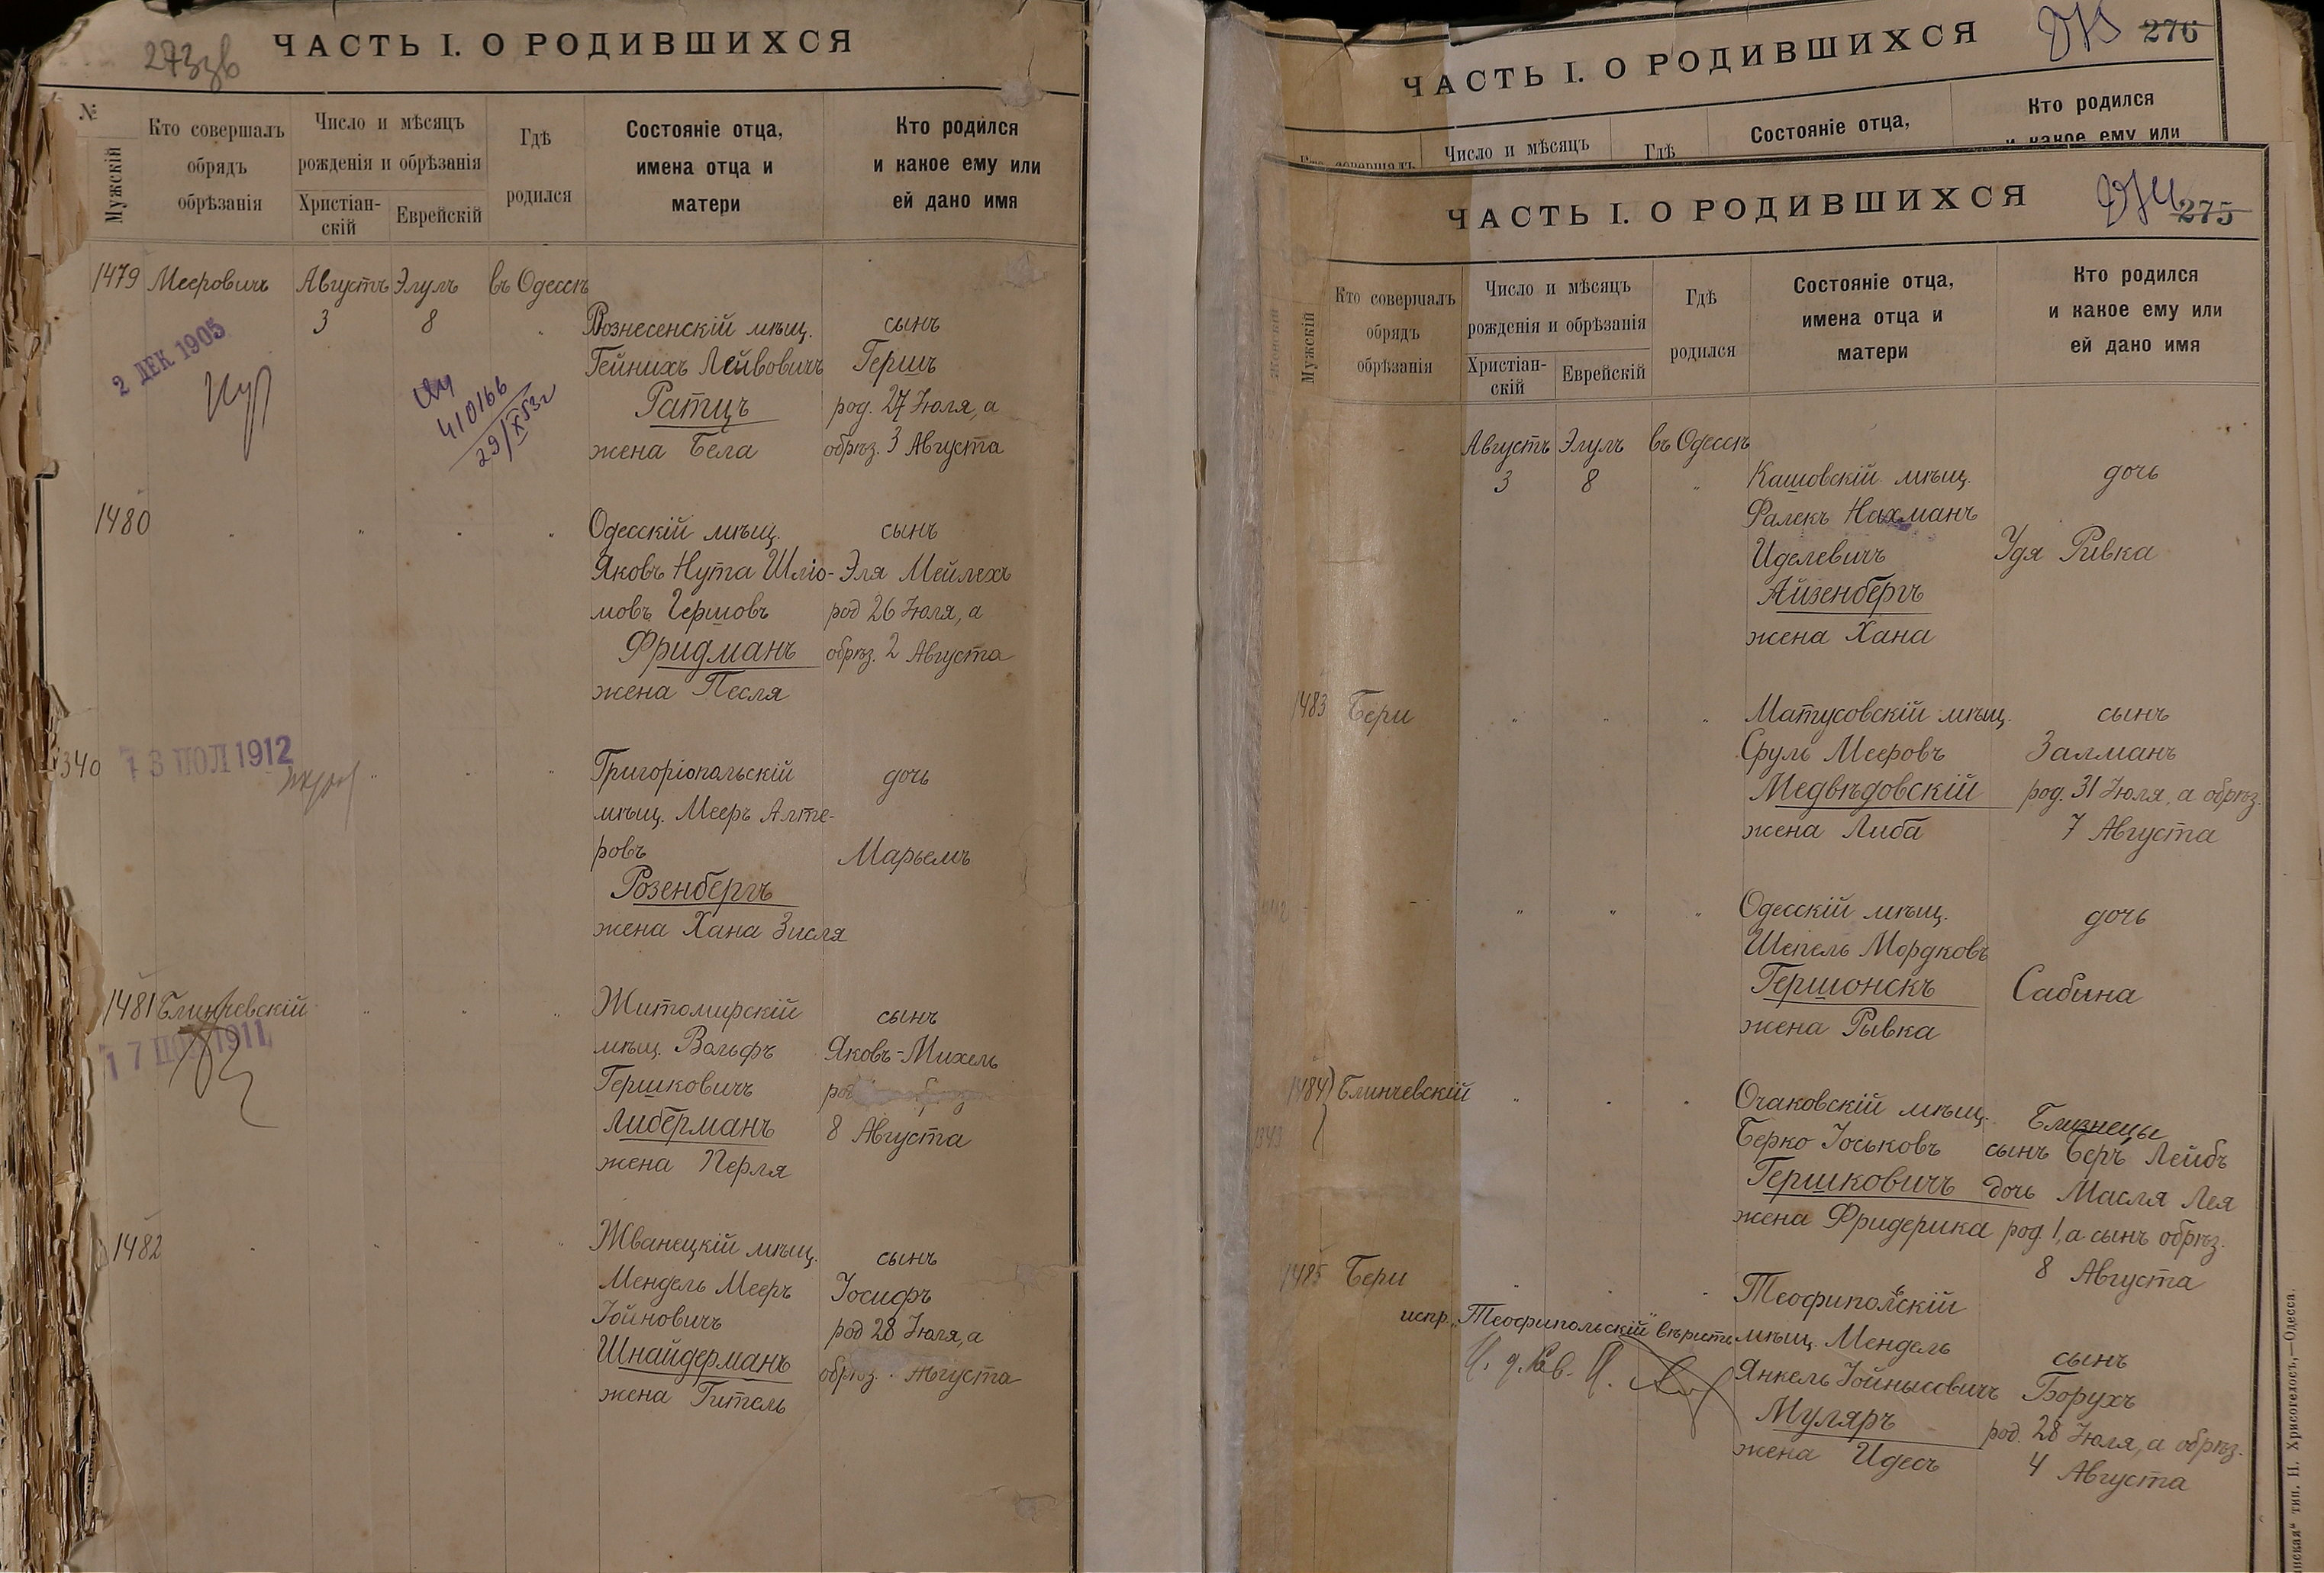 273зв
ЧАСТЬ I. О РОДИВШИХСЯ
№
Мужскій
Кто совершалъ
обрядъ
обрѣзанія
Число и мѣсяцъ
рожденія и обрѣзанія
Христіан-
скій
Еврейскій
Гдѣ
родился
Состояніе отца,
имена отца и
матери
Кто родился
и какое ему или
ей дано имя
1479 Мееровичъ Августъ Элулъ въ Одессѣ
3 8 " Вознесенскій мѣщ. сынъ
2 ДЕК 1905
Гейнихъ Лейвовичъ Гершъ
410166
29/X 53г
Ратцъ род. 27 Іюля, а
жена Бела обрѣз. 3 Августа
1480 " " " " Одесскій мѣщ. сынъ
Яковъ Нута Шліо- Эля Мейлехъ
мовъ Гершовъ род 26 Іюля, а
Фридманъ обрѣз. 2 Августа
жена Песля
340 " " " Григоріопольскій дочь
1912
мѣщ. Мееръ Алте-
ровъ Марьемъ
Розенбергъ
жена Хана Зисля
1481 Блинчевскій " " " Житомирскій сынъ
1911
мѣщ. Вольфъ Яковъ-Михель
Гершковичъ род
Либерманъ 8 Августа
жена Перля
1482 " " " " Жванецкій мѣщ. сынъ
Мендель Мееръ Іосифъ
Іойновичъ род 28 Іюля, а
Шнайдерманъ обрѣз. Августа
жена Гитель
ЧАСТЬ I. О РОДИВШИХСЯ
276
Кто совершалъ
Число и мѣсяцъ
Гдѣ
Состояніе отца,
Кто родился
и какое ему или
ЧАСТЬ I. О РОДИВШИХСЯ
275
Женскій
Мужскій
Кто совершалъ
обрядъ
обрѣзанія
Число и мѣсяцъ
рожденія и обрѣзанія
Христіан-
скій
Еврейскій
Гдѣ
родился
Состояніе отца,
имена отца и
матери
Кто родился
и какое ему или
ей дано имя
Августъ Элулъ въ Одессѣ
3 8 " Кашовскій мѣщ. дочь
Фалекъ Нахманъ
Иделевичъ Удя Ривка
Айзенбергъ
жена Хана
1483 Бери " " " Матусовскій мѣщ. сынъ
Сруль Мееровъ Залманъ
Медвѣдовскій род. 31 Іюля, а обрѣз.
жена Либа 7 Августа
" " " Одесскій мѣщ. дочь
Шепель Мордковъ
Гершонскъ Сабина
жена Рывка
1484 Блинчевскій " " " Очаковскій мѣщ. Близнецы
Берко Іоськовъ сынъ Беръ Лейбъ
Гершковичъ дочь Масля Лея
жена Фридерика род. 1, а сынъ обрѣз.
8 Августа
1485 Бери " " Теофипольскій
испр. „Теофипольскій" вѣрить мѣщ. Мендель сынъ
Янкель Іойнысовичъ Борухъ
Муляръ род. 28 Іюля, а обрѣз.
жена Идесъ 4 Августа
тип. Н. Хрисогелосъ,—Одесса.